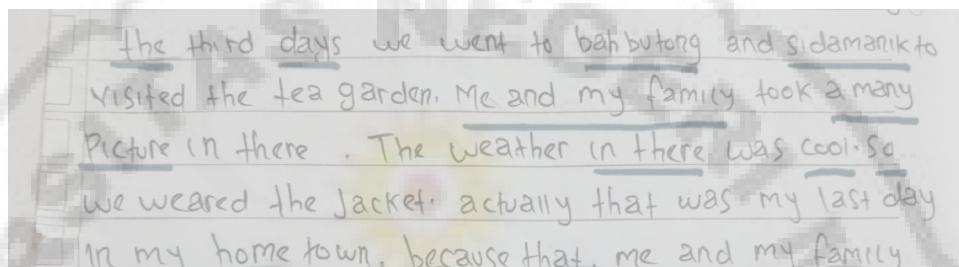 the third days we went to bah butong and sidamanik to
visited the tea garden. Me and my family took a many
Picture in there . The weather in there was cool. so
we weared the Jacket. actually that was my last day
in my home town. because that, me and my family